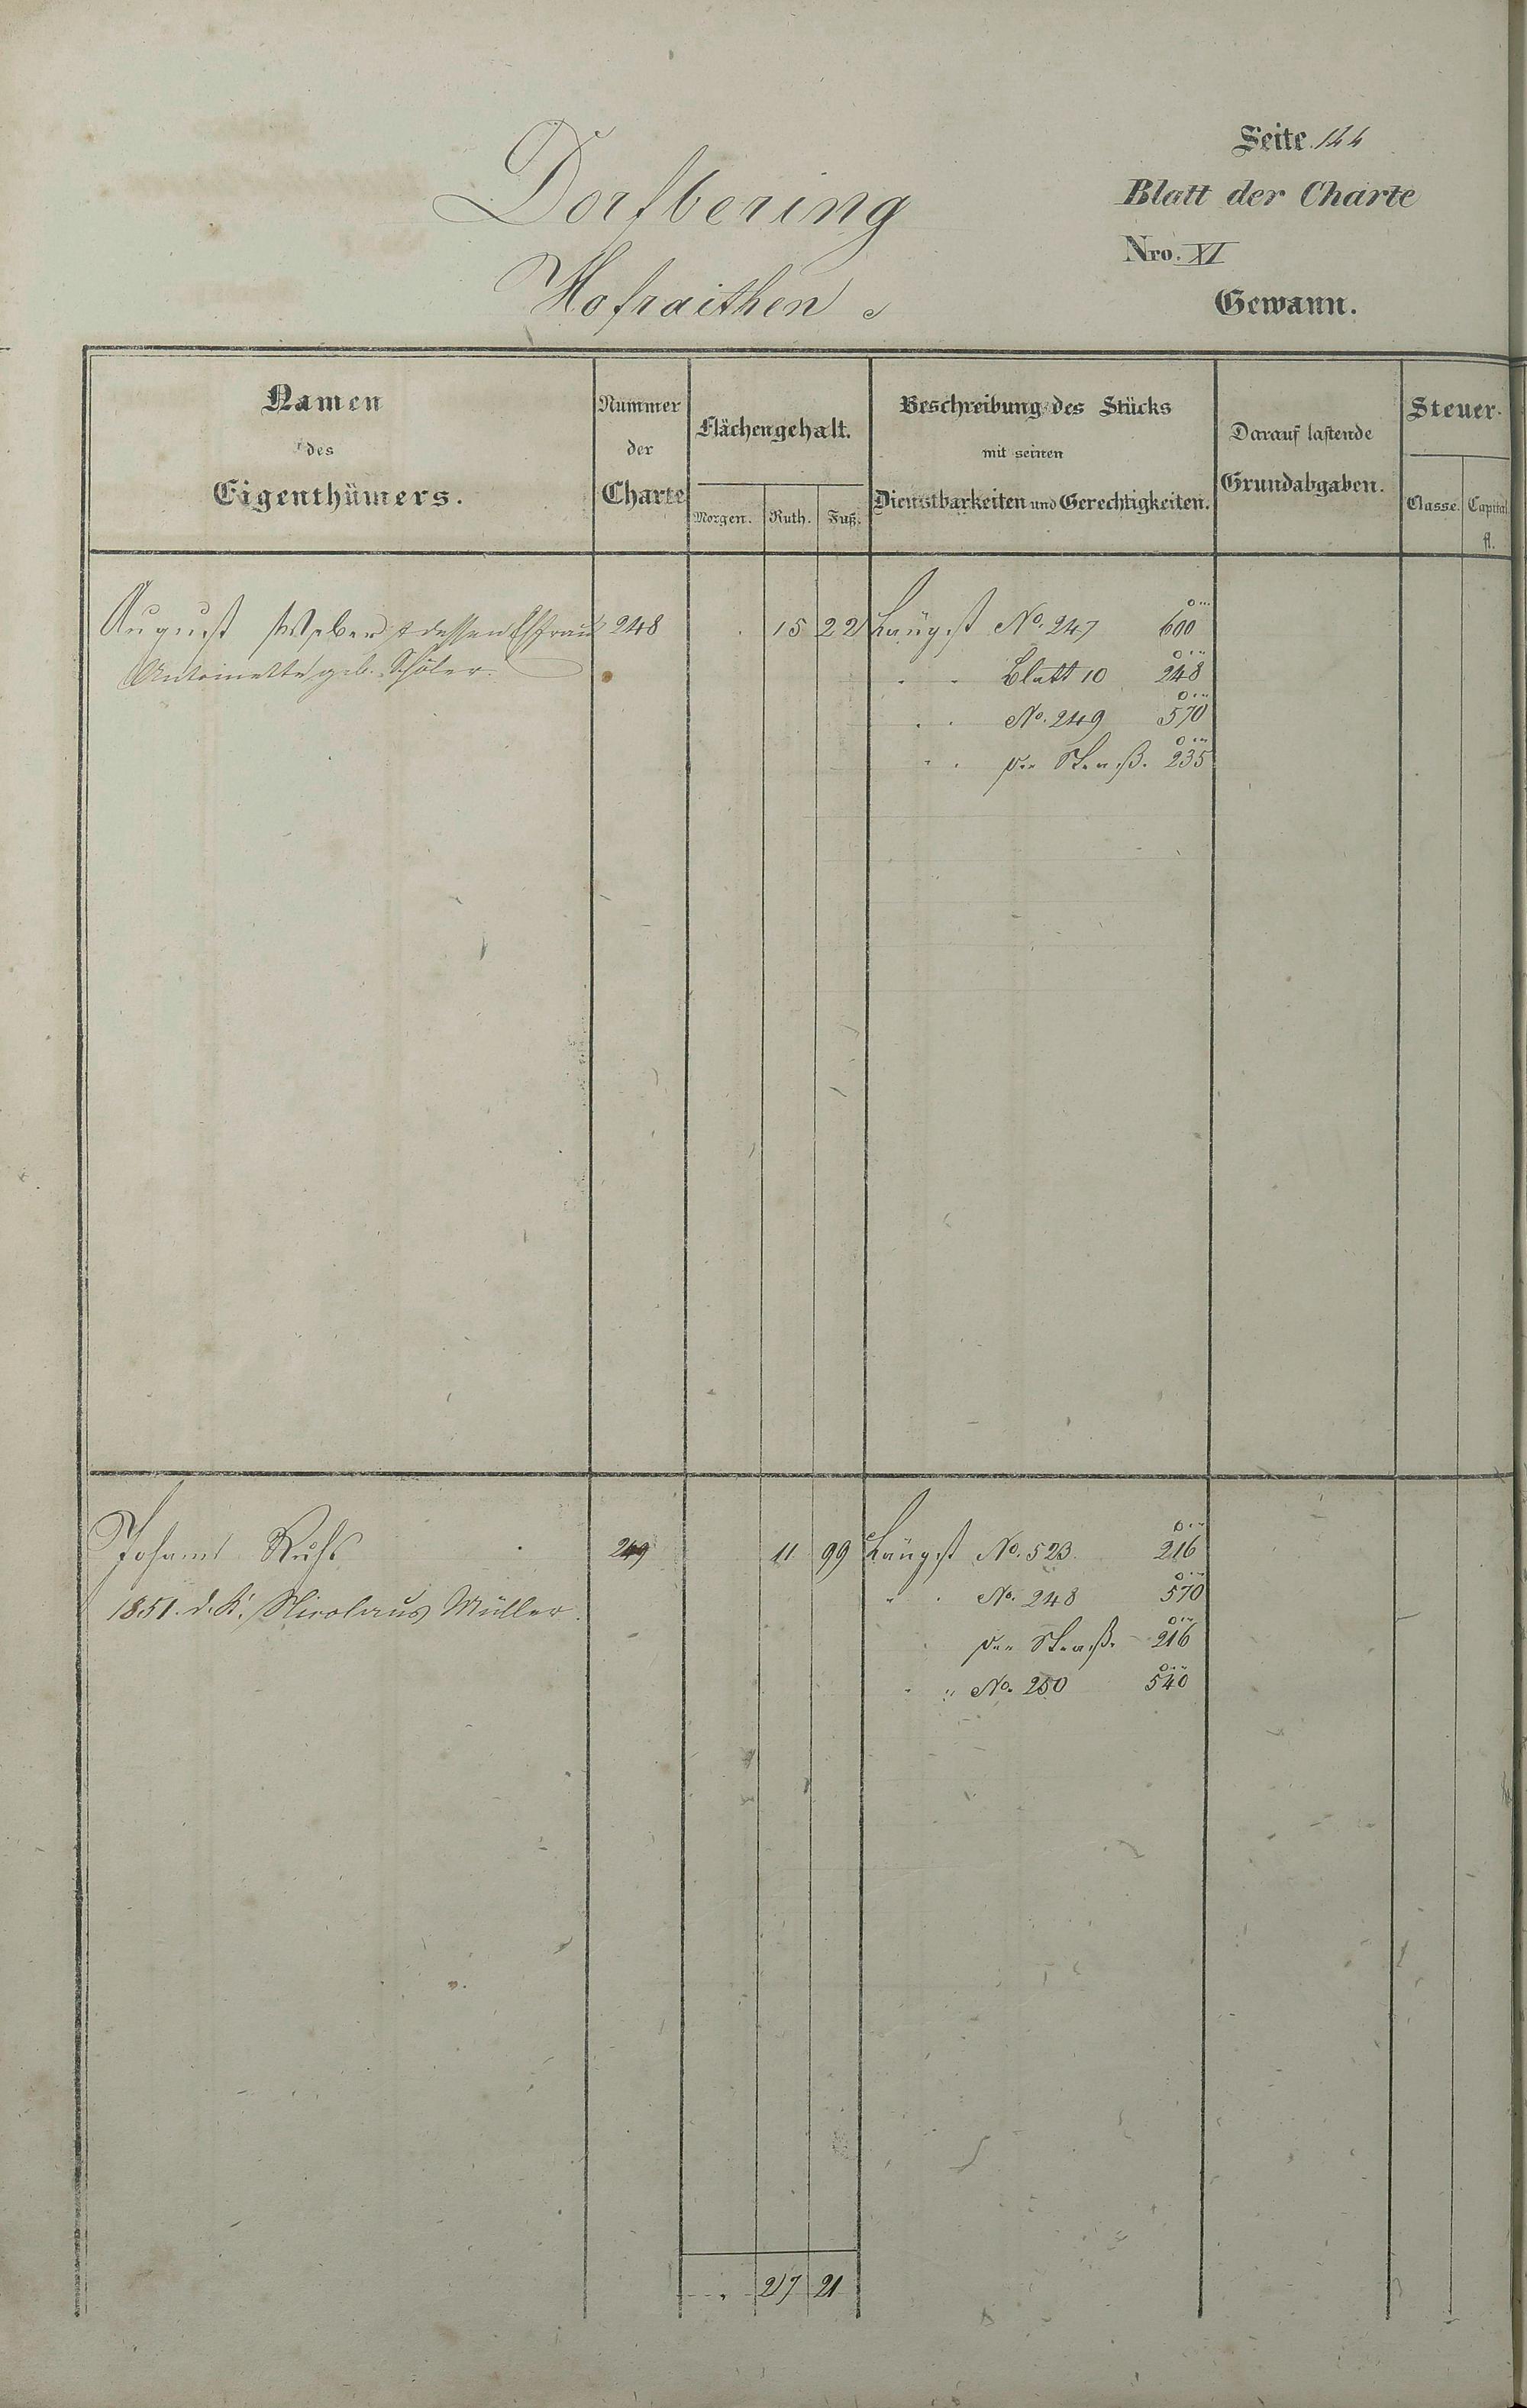 Seite 144
Dorfbering
Blatt der Charte
Nro. XI
Hofraithen
Gewann.
Namen
des
Eigenthümers.
Nummer
der
Charte
Flächengehalt.
Morgen. Ruth. Fuß.
Beschreibung des Stücks
mit seinen
Dienstbarkeiten und Gerechtigkeiten.
Darauf lastende
Grundabgaben.
Steuer-
Classe. Capital
fl.
August Weber & dessen Ehfrau 248 15 22 Längst No. 247 600
Antoinette geb. Schöler. " " Blatt 10 248
" " No. 249 570
" " der Straß. 235
Johann Ruhl 249 11 99 Längst No. 523 216
1851. d. K. Nicolaus Müller. " " No. 248 570
der Straß. 216
" " No. 250 540
27 21